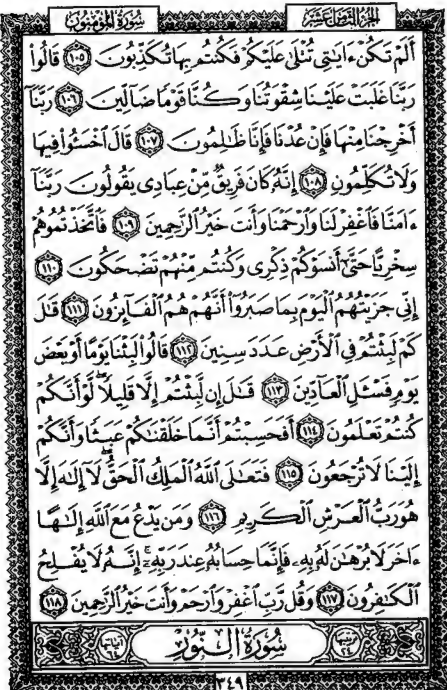 الجزء الثامن عشر
سورة المؤمنون
أَلَمْ تَكُنْ ءَايَٰتِى تُتْلَىٰ عَلَيْكُمْ فَكُنتُم بِهَا تُكَذِّبُونَ ١٠٥ قَالُوا۟
رَبَّنَا غَلَبَتْ عَلَيْنَا شِقْوَتُنَا وَكُنَّا قَوْمًا ضَآلِّينَ ١٠٦ رَبَّنَآ
أَخْرِجْنَا مِنْهَا فَإِنْ عُدْنَا فَإِنَّا ظَٰلِمُونَ ١٠٧ قَالَ ٱخْسَـُٔوا۟ فِيهَا
وَلَا تُكَلِّمُونِ ١٠٨ إِنَّهُۥ كَانَ فَرِيقٌ مِّنْ عِبَادِى يَقُولُونَ رَبَّنَآ
ءَامَنَّا فَٱغْفِرْ لَنَا وَٱرْحَمْنَا وَأَنتَ خَيْرُ ٱلرَّٰحِمِينَ ١٠٩ فَٱتَّخَذْتُمُوهُمْ
سِخْرِيًّا حَتَّىٰٓ أَنسَوْكُمْ ذِكْرِى وَكُنتُم مِّنْهُمْ تَضْحَكُونَ ١١٠
إِنِّى جَزَيْتُهُمُ ٱلْيَوْمَ بِمَا صَبَرُوٓا۟ أَنَّهُمْ هُمُ ٱلْفَآئِزُونَ ١١١ قَٰلَ
كَمْ لَبِثْتُمْ فِى ٱلْأَرْضِ عَدَدَ سِنِينَ ١١٢ قَالُوا۟ لَبِثْنَا يَوْمًا أَوْ بَعْضَ
يَوْمٍ فَسْـَٔلِ ٱلْعَآدِّينَ ١١٣ قَٰلَ إِن لَّبِثْتُمْ إِلَّا قَلِيلًا لَّوْ أَنَّكُمْ
كُنتُمْ تَعْلَمُونَ ١١٤ أَفَحَسِبْتُمْ أَنَّمَا خَلَقْنَٰكُمْ عَبَثًا وَأَنَّكُمْ
إِلَيْنَا لَا تُرْجَعُونَ ١١٥ فَتَعَٰلَى ٱللَّهُ ٱلْمَلِكُ ٱلْحَقُّ لَآ إِلَٰهَ إِلَّا
هُوَ رَبُّ ٱلْعَرْشِ ٱلْكَرِيمِ ١١٦ وَمَن يَدْعُ مَعَ ٱللَّهِ إِلَٰهًا
ءَاخَرَ لَا بُرْهَٰنَ لَهُۥ بِهِۦ فَإِنَّمَا حِسَابُهُۥ عِندَ رَبِّهِۦٓ إِنَّهُۥ لَا يُفْلِحُ
ٱلْكَٰفِرُونَ ١١٧ وَقُل رَّبِّ ٱغْفِرْ وَٱرْحَمْ وَأَنتَ خَيْرُ ٱلرَّٰحِمِينَ ١١٨
ترتيبها ٢٤ سُورَةُ النُّورِ آياتها ٦٤
٣٤٩